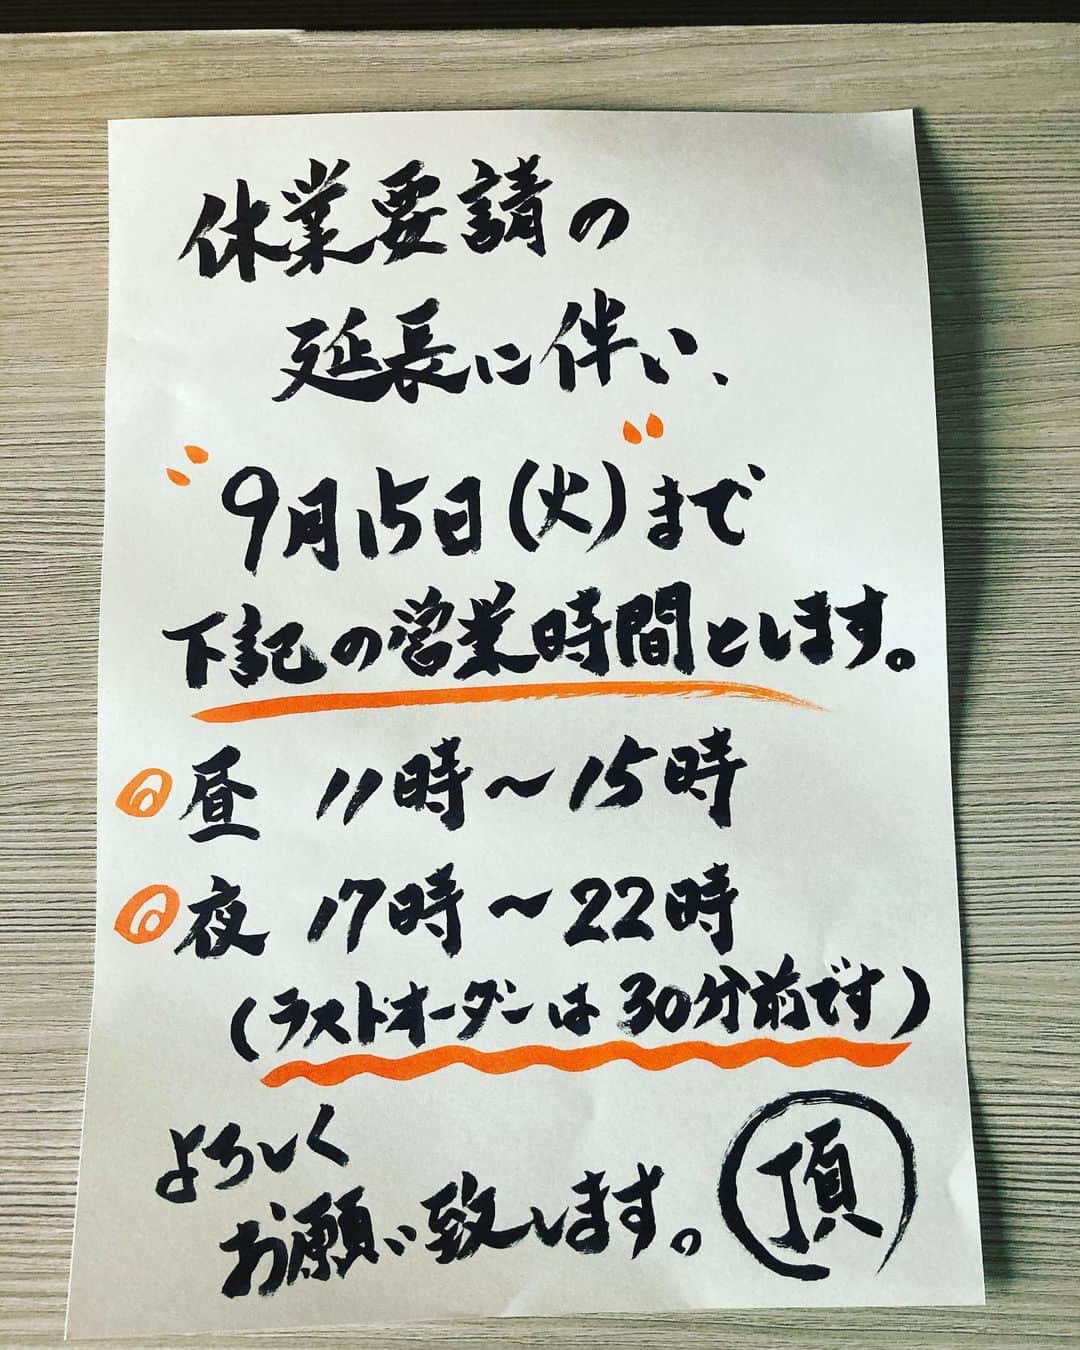 休業要請の
延長に伴い、
"9月15日(火)"まで
下記の営業時間とします。
昼 11時〜15時
夜 17時〜22時
(ラストオーダーは30分前です)
よろしく
お願い致します。
頂